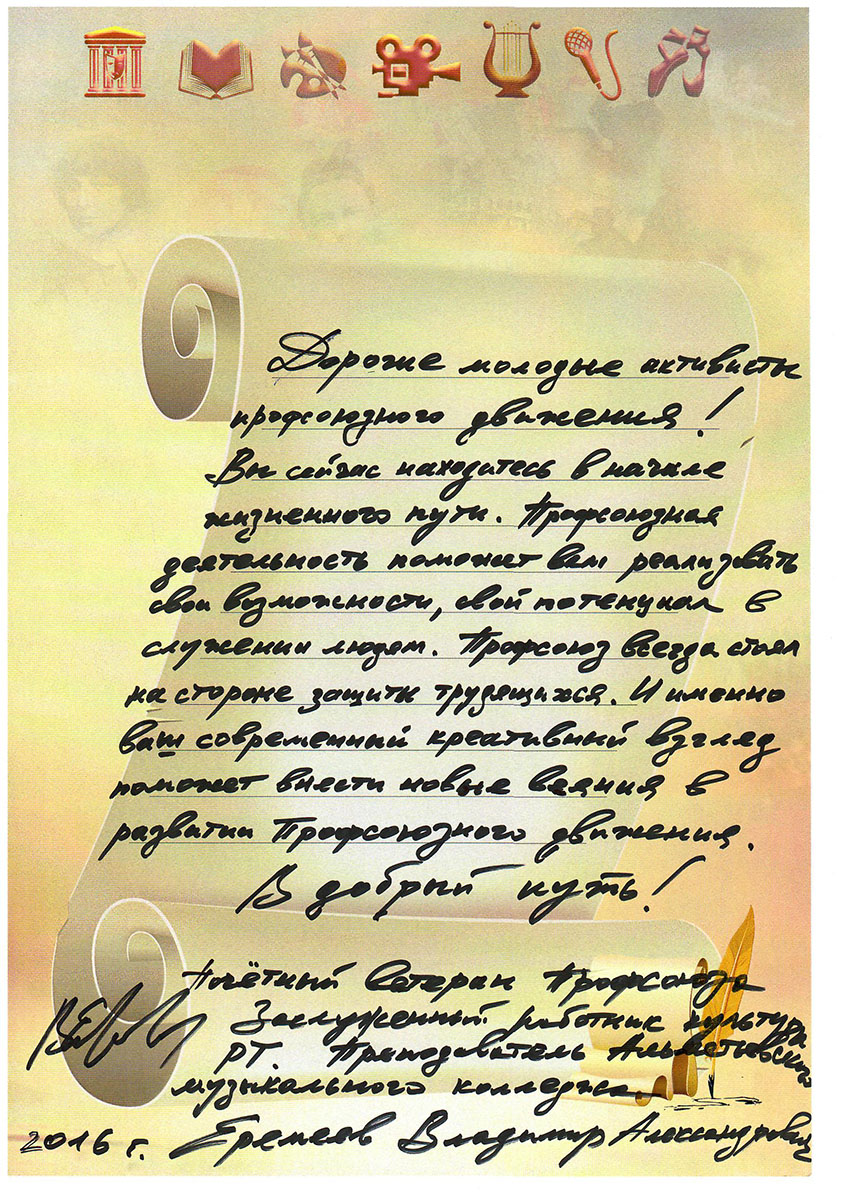 Дорогие молодые активисты
профсоюзного движения!
Вы сейчас находитесь в начале
жизненного пути. Профсоюзная
деятельность поможет вам реализовать
свои возможности, свой потенциал в
служении людям. Профсоюз всегда стоял
на стороне защиты трудящихся. И именно
ваш современный креативный взгляд
поможет внести новые веяния в
развитии Профсоюзного движения.
В добрый путь!
Почётный ветеран Профсоюза
Заслуженный работник культуры
РТ. Преподаватель Альметьевского
музыкального колледжа.
2016 г. Еремеев Владимир Александрович